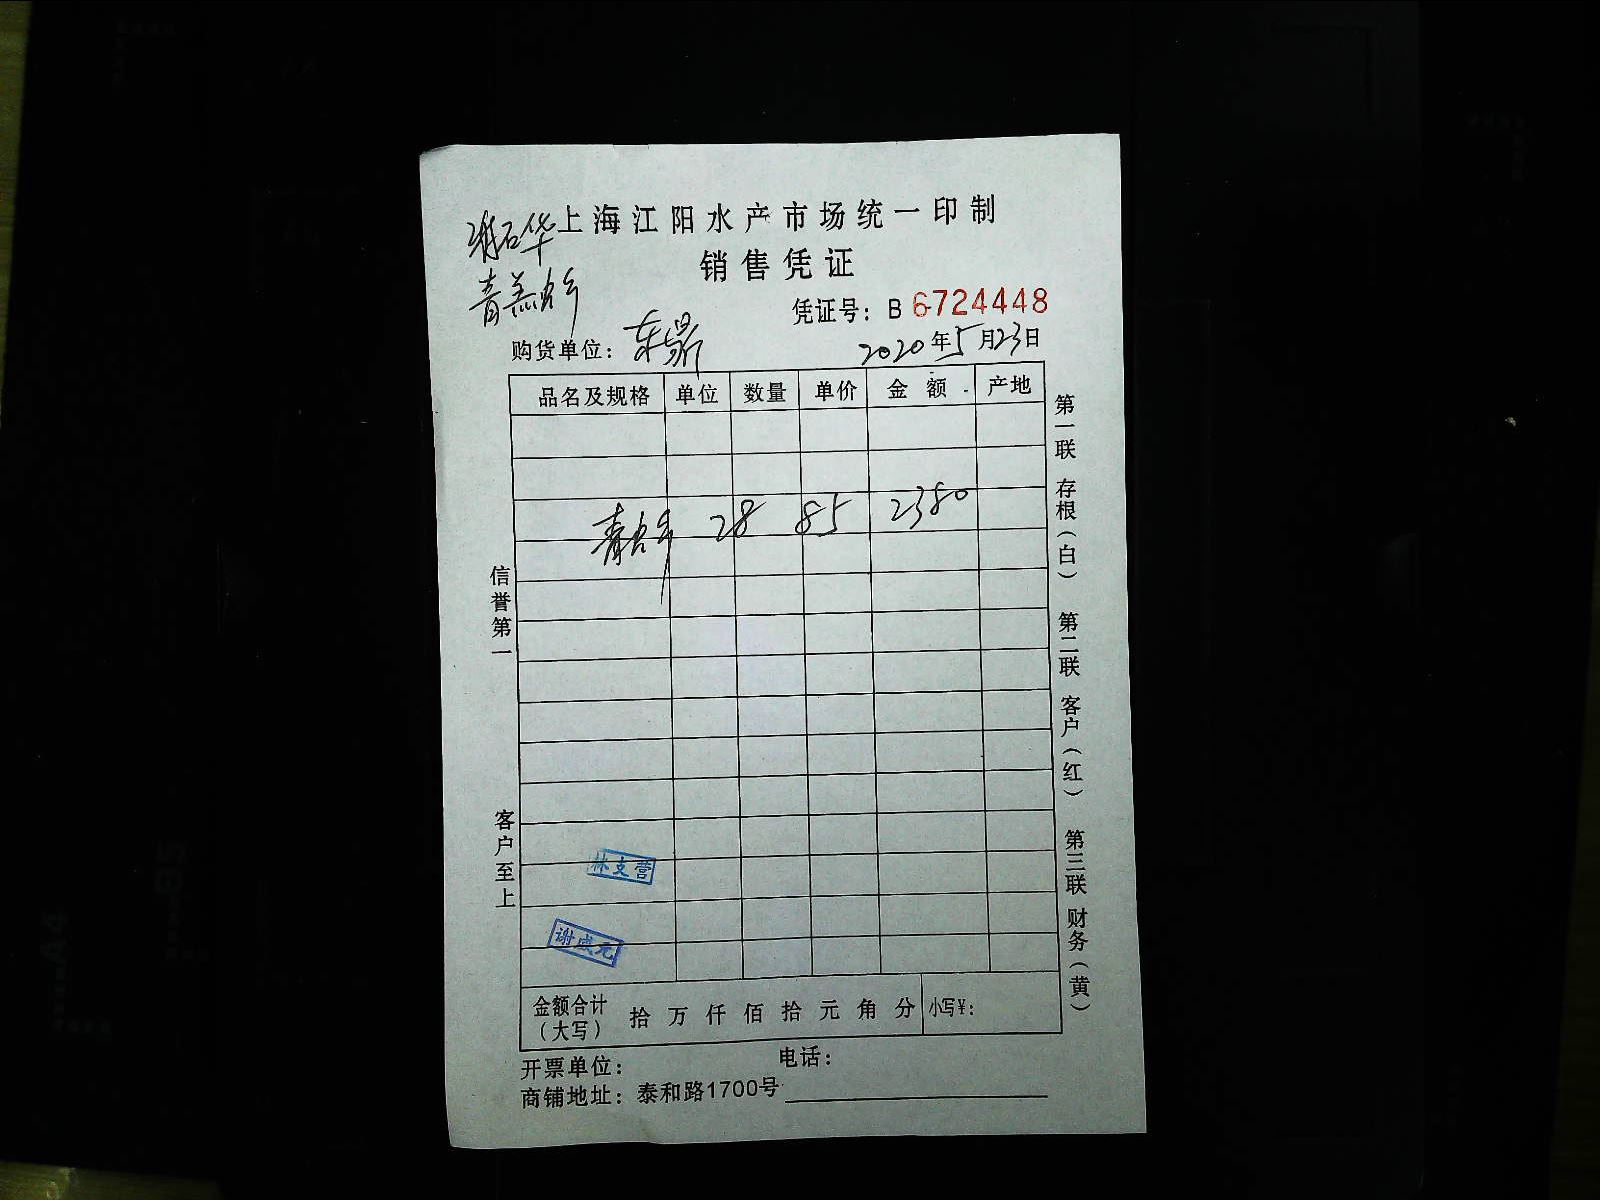 上海江阳水产市场统一印制
销售凭证
凭证号：B 6724448
购货单位：东
2020年5月23日
品名及规格 单位 数量 单价 金额 产地
青 28 85 2380
信誉第一
客户至上
第一联 存根（白） 第二联 客户（红） 第三联 财务（黄）
林支营
谢成元
金额合计（大写） 拾 万 仟 佰 拾 元 角 分 小写¥：
开票单位： 电话：
商铺地址：泰和路1700号